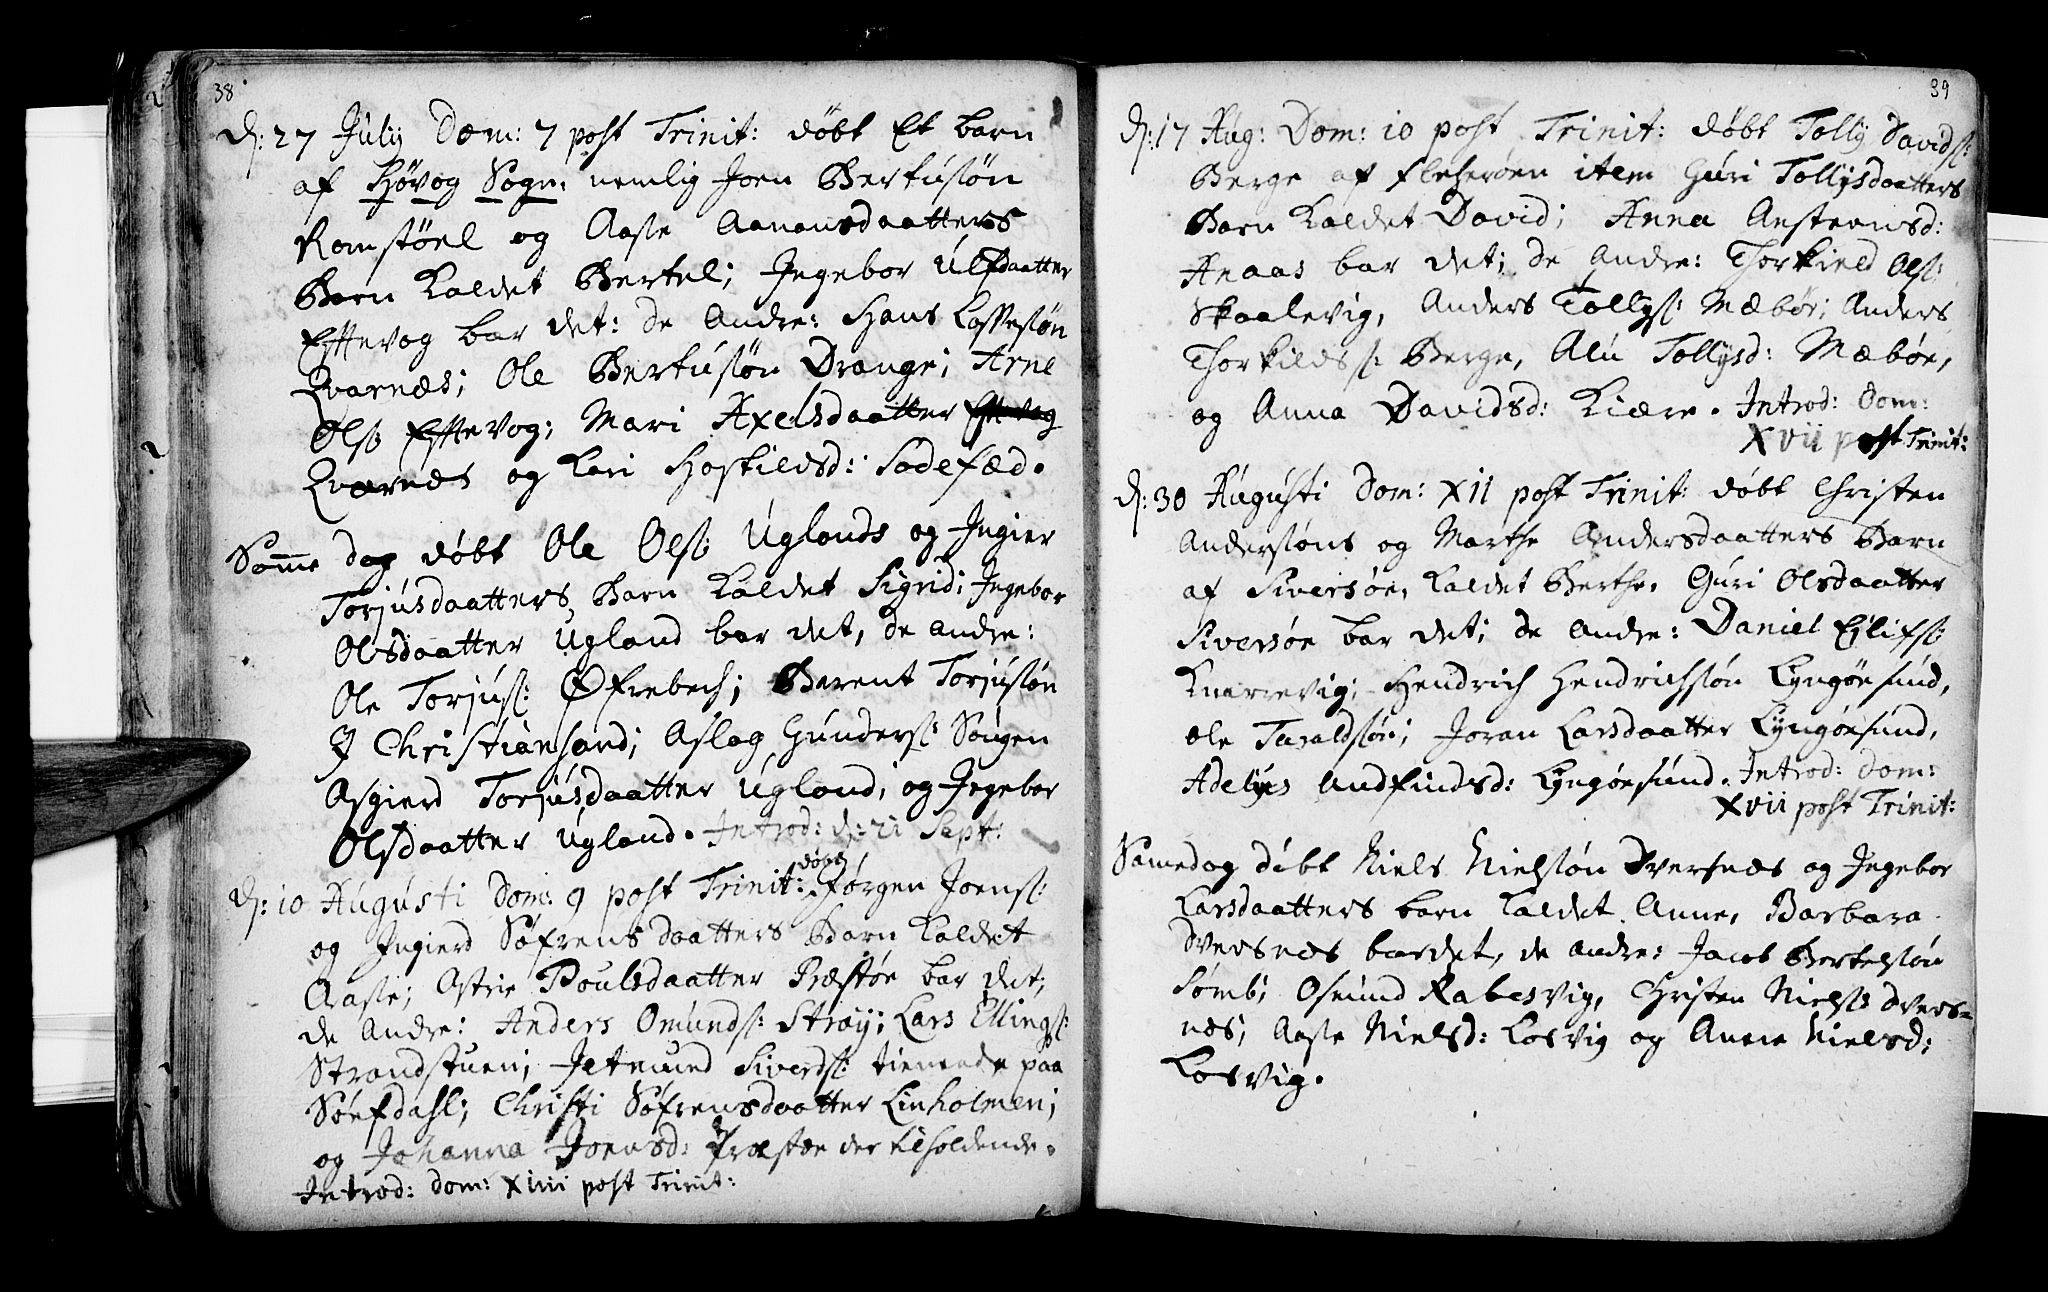 38
d: 27 Julij Dom: 7 post Trinit: döbt Et barn
af Høvog Sogn: nemlig Joen Bertusøn
Romstøel og Aaste Aanonsdaatters
Barn Kaldet Bertel; Jngebor Ulfdaatter
Eftevog bar det: de Andre: Hans Lassesøn
Qvarnæs; Ole Bertusøn Drange; Arne
Ols: Eftevog; Mari Axelsdaatter
Qvarnes og Kari Haskilds: Sødefæd.
Samme dag døbt Ole Ols: Uglands og Jngier
Torjusdaatters Barn Kaldet Sigrid; Jngebor
Olsdaatter Ugland bar det, de andre:
Ole Torjus: Øfrebech; Berent Torjusøn
J Christiansand; Aslag Gunders: Søngen
Asgierd Torjusdaatter Ugland; og Jngebor
Olsdaatter Ugland. Introd: d: 21 Sept:
d: 10 Augusti Dom: 9 post Trinit: døbt Jørgen Joens:
og Jngierd Søfrens daatters Barn Kaldet
Aaste; Astrie Poulsdaatter Præstøe bar det;
de Andre: Anders Omunds: Strøy; Lars Ellings:
Strandstuen; Jetmund Siverds: tienende paa
Sørfdahl; Christi Søfrensdaatter Linholmen;
og Johanna Joensd: Præstøe der tilholdende.
Introd: dom: XIIII post Trinit:
39
d: 17 Aug: Dom: 10 post Trinit: døbt Tolly Davids:
Berge af Flekerøen item Guri Tollysdaatters
Barn Kaldet David; Anna Anstensd:
Aaas bar det; de Andre: Thorkield Ols:
Skaalevig, Anders Tollys: Mæbøe; Anders
Thorkilds: Berge, Alu Tollysd: Mæbøe,
og Anna Davidsd: Kiære. Introd: Dom:
XVII post Trinit:
d: 30 Augusti Dom: XII post Trinit: døbt Christen
Andersøns og Marthe Andersdaatters Barn
af Siversøe, Kaldet Berthe. Guri Olsdaatter
Siversøe bar det; de Andre: Daniel Ejlifs:
Knarrevig; Hendrich Hendrichsøn Lyngøesund,
Ole Taraldsøn; Joran Larsdaatter Lyngøesund,
Adelyes Andfindsd: Lyngøesund. Introd: Dom:
XVII post Trinit:
Samedag døbt Niels Nielsøn Dversnæs og Jngebor
Larsdaatters barn Kaldet Anne, Barbara
Dversnæs bardet, de andre: Jacob Bertelsøn
Sømb; Osmund Rabesvig, Christen Niels: Dvers=
næs; Aaste Nielsd: Kosvig og Anne Nielsd:
Kosvig.